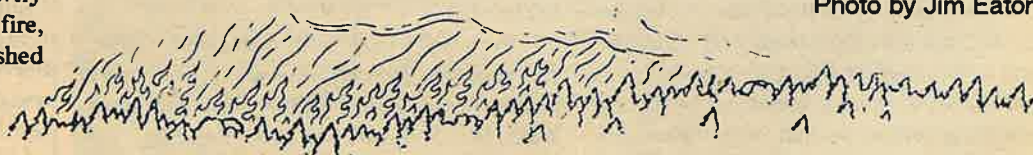 fire,
shed
Photo by Jim Eaton